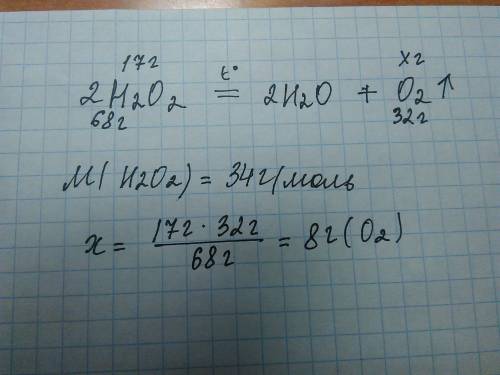 17г хг
t°
2H₂O₂ = 2H₂O + O₂↑
68г 32г
M(H₂O₂) = 34г/моль
x = 17г · 32г / 68г = 8г (O₂)